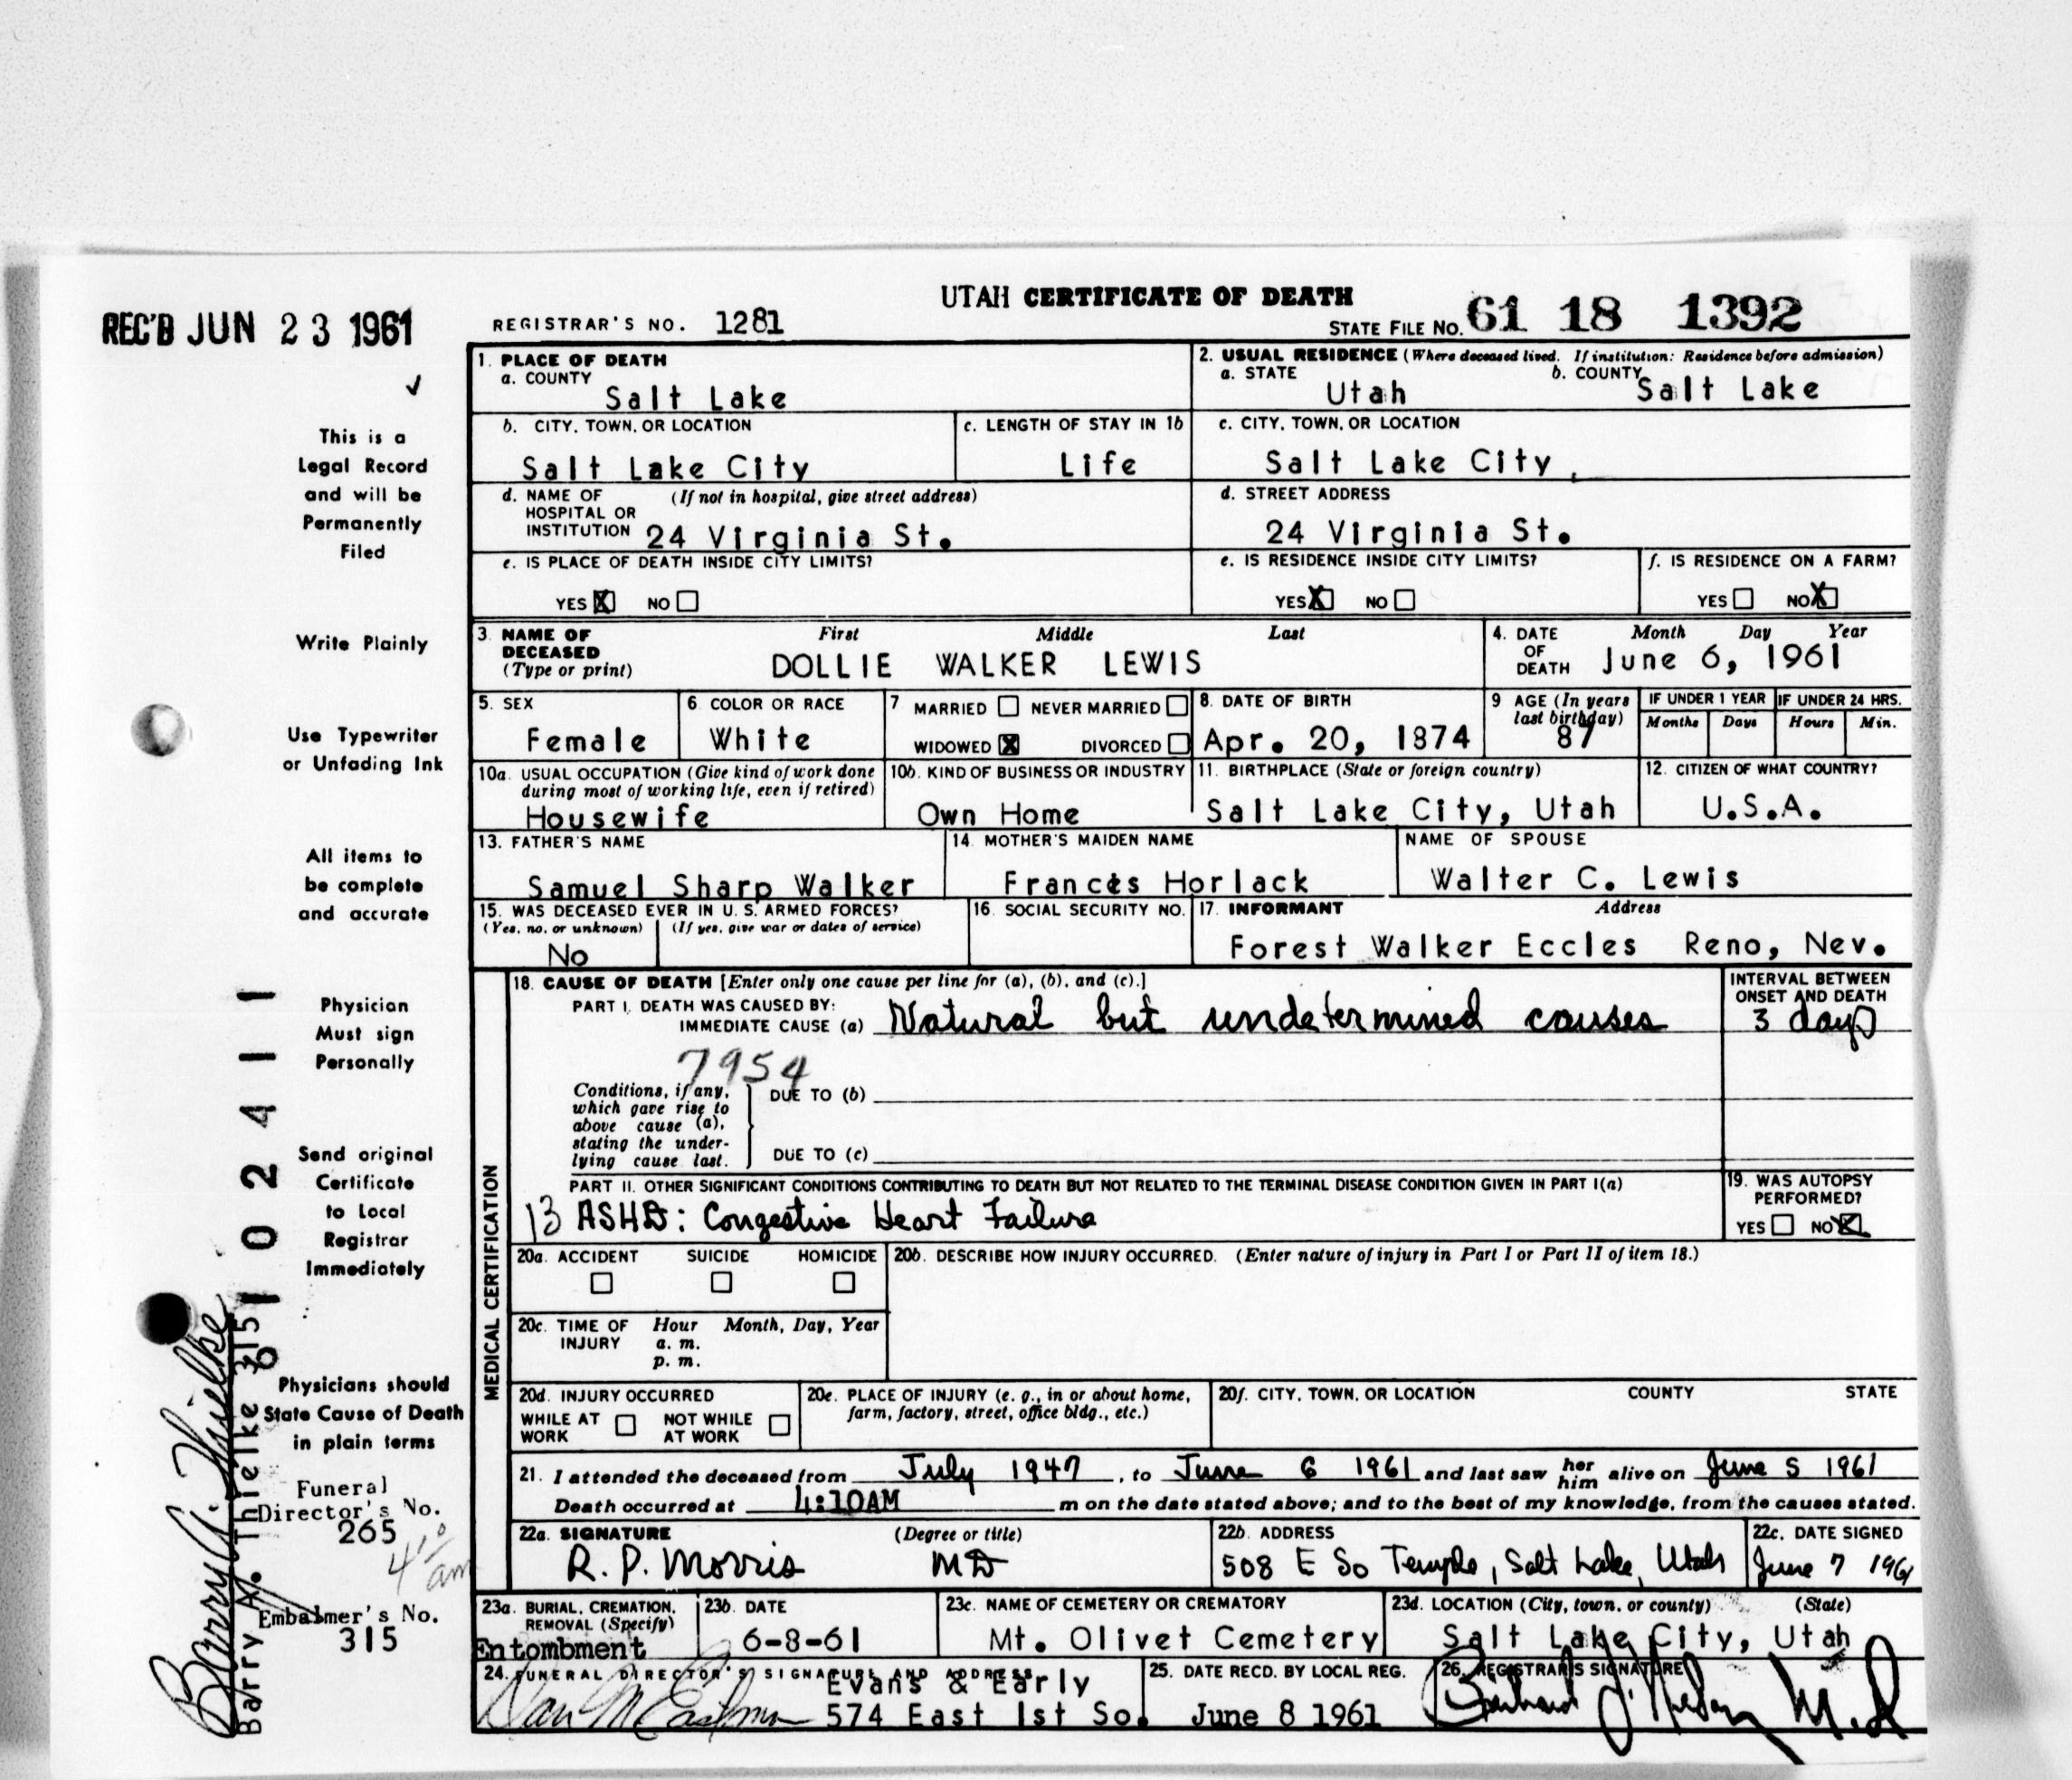 UTAH CERTIFICATE OF DEATH
REC'D JUN 23 1961
REGISTRAR'S NO. 1281
STATE FILE NO. 61 18 1392
1. PLACE OF DEATH
a. COUNTY
Salt Lake
2. USUAL RESIDENCE (Where deceased lived. If institution: Residence before admission)
a. STATE Utah b. COUNTY Salt Lake
b. CITY, TOWN, OR LOCATION
Salt Lake City
c. LENGTH OF STAY IN 1b
Life
c. CITY, TOWN, OR LOCATION
Salt Lake City,
d. NAME OF HOSPITAL OR INSTITUTION (If not in hospital, give street address)
24 Virginia St.
d. STREET ADDRESS
24 Virginia St.
e. IS PLACE OF DEATH INSIDE CITY LIMITS?
YES X NO
e. IS RESIDENCE INSIDE CITY LIMITS?
YES X NO
f. IS RESIDENCE ON A FARM?
YES NO X
3. NAME OF DECEASED (Type or print)
First Middle Last
DOLLIE WALKER LEWIS
4. DATE OF DEATH
Month Day Year
June 6, 1961
5. SEX
Female
6. COLOR OR RACE
White
7 MARRIED NEVER MARRIED
WIDOWED X DIVORCED
8. DATE OF BIRTH
Apr. 20, 1874
9 AGE (In years last birthday)
87
IF UNDER 1 YEAR
Months Days
IF UNDER 24 HRS.
Hours Min.
10a. USUAL OCCUPATION (Give kind of work done during most of working life, even if retired)
Housewife
10b. KIND OF BUSINESS OR INDUSTRY
Own Home
11. BIRTHPLACE (State or foreign country)
Salt Lake City, Utah
12. CITIZEN OF WHAT COUNTRY?
U.S.A.
13. FATHER'S NAME
Samuel Sharp Walker
14. MOTHER'S MAIDEN NAME
Frances Horlack
NAME OF SPOUSE
Walter C. Lewis
15. WAS DECEASED EVER IN U. S. ARMED FORCES?
(Yes, no, or unknown) (If yes, give war or dates of service)
No
16. SOCIAL SECURITY NO.
17. INFORMANT Address
Forest Walker Eccles Reno, Nev.
MEDICAL CERTIFICATION
18. CAUSE OF DEATH [Enter only one cause per line for (a), (b), and (c).]
PART I. DEATH WAS CAUSED BY:
IMMEDIATE CAUSE (a) Natural but undetermined causes
INTERVAL BETWEEN ONSET AND DEATH
3 days
7954
Conditions, if any, which gave rise to above cause (a), stating the underlying cause last.
DUE TO (b)
DUE TO (c)
PART II. OTHER SIGNIFICANT CONDITIONS CONTRIBUTING TO DEATH BUT NOT RELATED TO THE TERMINAL DISEASE CONDITION GIVEN IN PART I(a)
13 ASHD: Congestive Heart Failure
19. WAS AUTOPSY PERFORMED?
YES NO X
20a. ACCIDENT SUICIDE HOMICIDE
20b. DESCRIBE HOW INJURY OCCURRED. (Enter nature of injury in Part I or Part II of item 18.)
20c. TIME OF INJURY Hour Month, Day, Year
a. m.
p. m.
20d. INJURY OCCURRED
WHILE AT WORK NOT WHILE AT WORK
20e. PLACE OF INJURY (e. g., in or about home, farm, factory, street, office bldg., etc.)
20f. CITY, TOWN, OR LOCATION COUNTY STATE
21. I attended the deceased from July 1947, to June 6 1961 and last saw her him alive on June 5 1961
Death occurred at 4:10AM m on the date stated above; and to the best of my knowledge, from the causes stated.
22a. SIGNATURE (Degree or title)
R. P. Morris MD
22b. ADDRESS
508 E So Temple, Salt Lake, Utah
22c. DATE SIGNED
June 7 1961
23a. BURIAL, CREMATION, REMOVAL (Specify)
Entombment
23b. DATE
6-8-61
23c. NAME OF CEMETERY OR CREMATORY
Mt. Olivet Cemetery
23d. LOCATION (City, town, or county) (State)
Salt Lake City, Utah
24. FUNERAL DIRECTOR'S SIGNATURE AND ADDRESS
Evans & Early
574 East 1st So.
25. DATE RECD. BY LOCAL REG.
June 8 1961
26. REGISTRAR'S SIGNATURE
M.D
This is a
Legal Record
and will be
Permanently
Filed
Write Plainly
Use Typewriter
or Unfading Ink
All items to
be complete
and accurate
Physician
Must sign
Personally
Send original
Certificate
to Local
Registrar
Immediately
Physicians should
State Cause of Death
in plain terms
Funeral
Director's No.
265
4 10 am
Embalmer's No.
315
61102411
Barry A. Thielke
Barry A. Thielke 315